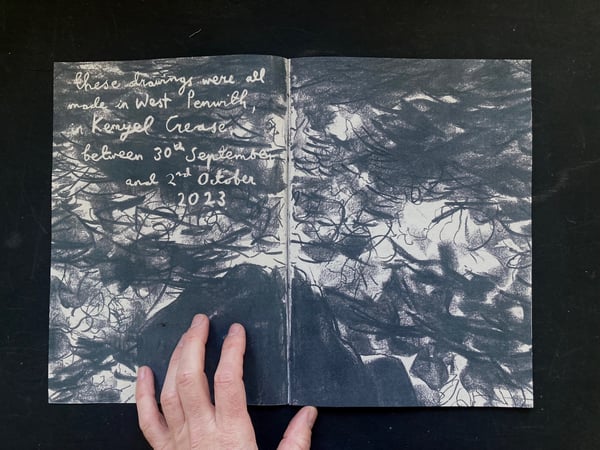 these drawings were all
made in West Penwith,
in Kenyel Crease,
between 30th September
and 2nd October
2023